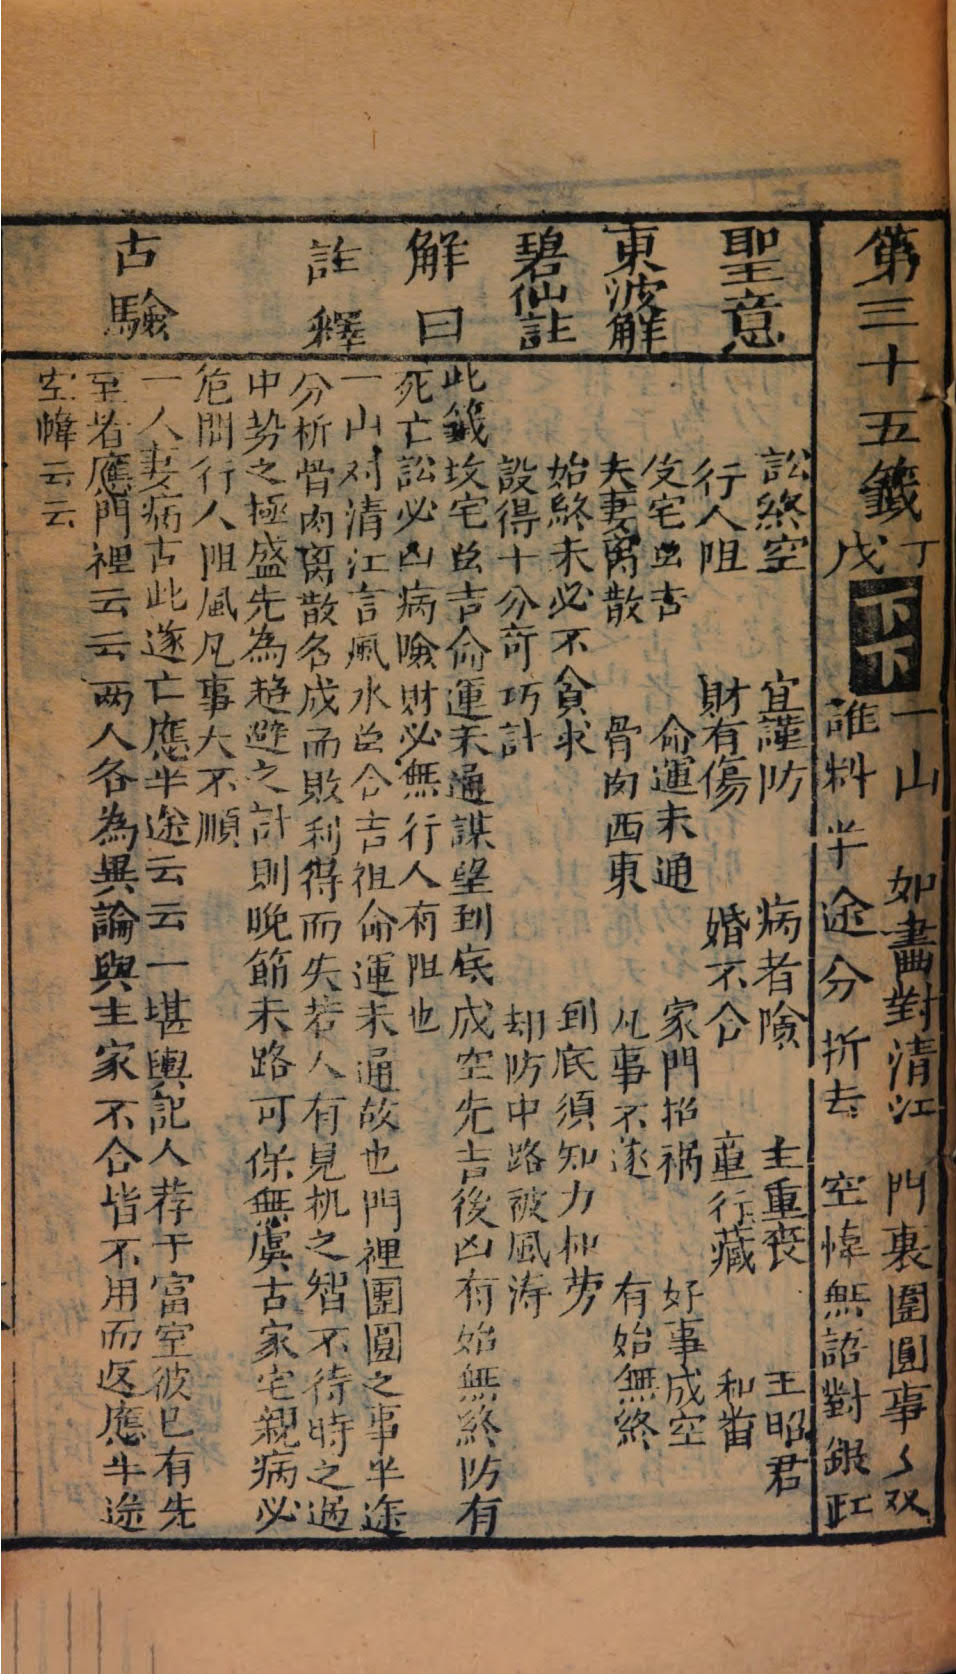 第三十五籤
丁戊
下下
一山如畫對清江 門裏團圓事〻双
誰料半途分折去 空幃無語對銀缸
聖意
訟終空 宜謹防 病者險 主重喪 王昭君
行人阻 財有傷 婚不合 童行藏 和畨
東坡解
坟宅虽吉 命運未通 家門招禍 好事成空
夫妻离散 骨肉西東 凡事不遂 有始無終
碧仙註
始終未必不貪求 到底須知力枉劳
設得十分奇巧計 却防中路被風涛
解曰
此籤坟宅虽吉命運未通謀望到底成空先吉後凶有始無終防有
死亡訟必凶病險財必無行人有阻也
註釋
一山对清江言風水虽合吉祖命運未通故也門裡團圓之事半途
分析骨肉离散名成而敗利得而失若人有見机之智不待時之過
中势之極盛先為趋避之計則晚節末路可保無虞古家宅親病必
危問行人阻風凡事大不順
古驗
一人妻病古此遂亡應半途云云一堪輿記人荐于富室彼已有先
至者應門裡云云两人各為異論與主家不合皆不用而返應半途
空幃云云